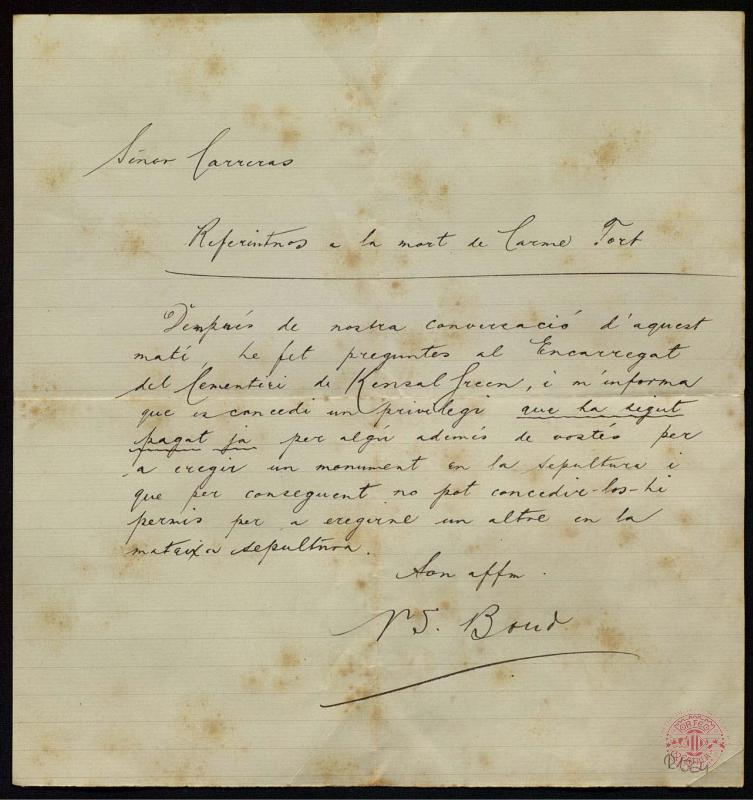 Señor Carreras
Referintnos a la mort de Carme Fort
Després de nostra conversació d'aquest
matí, he fet preguntes al Encarregat
del Cementiri de Kensal Green, i m'informa
que es concedi un privilegi que ha sigut
pagat ja per algú ademés de vostés per
a eregir un monument en la sepultura i
que per conseguent no pot concedir-los-hi
permis per a eregirne un altre en la
mateixa sepultura.
Son affm.
Bond
ORFEO